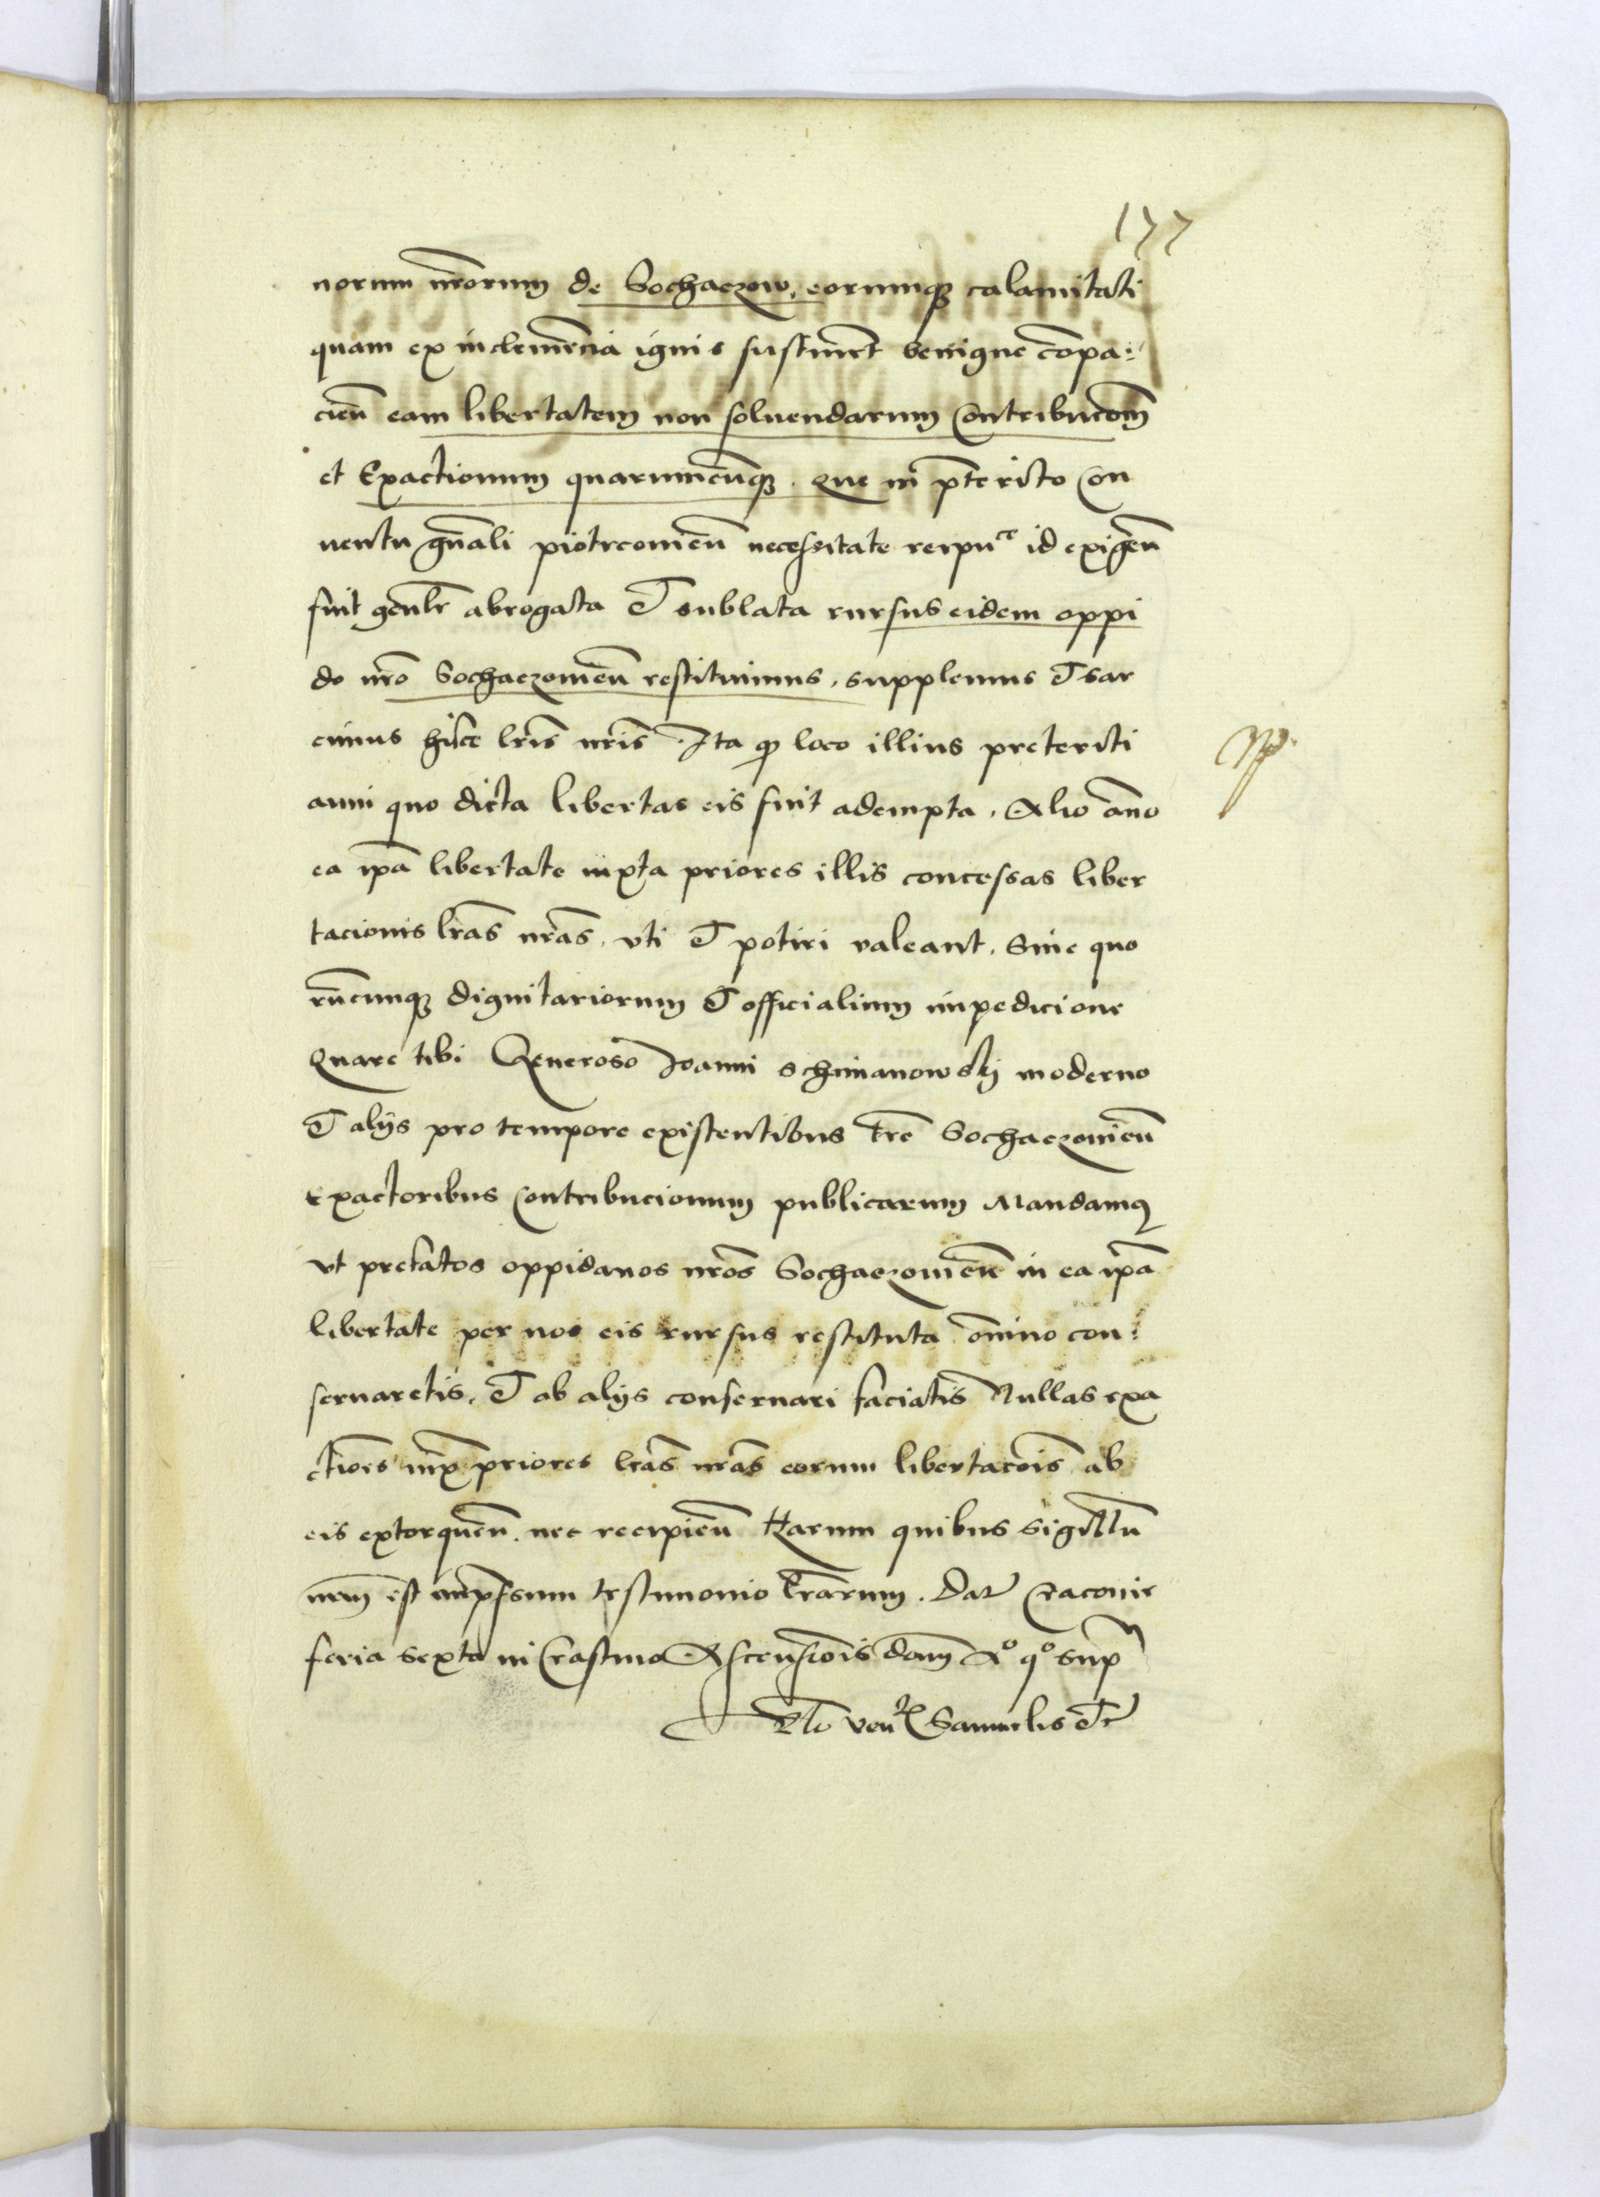 177
norum nrorum de Sochaczow, eorumq3 calamitati
quam ex inclemencia ignis sustinent benigne compa:
cien eam libertatem non soluendarum Contribucom
et Exactionum quarumcumq3. Que in pterito Con
uentu gnali piotrcouien necessitate reipu ce id exigen
fuit genlr abrogata Et sublata rursus eidem oppi
do nro Sochaczouien restituimus, supplemus Et sar
cimus hisce lris nris. Ita q loco illius preteriti
anni quo dicta libertas eis fuit adempta. Alio anno
ea ipa libertate iuxta priores illis concessas liber
tacionis lras nras, vti Et potiri valeant. Sine quo
rumcunq3 dignitariorum Et officialium impedicione
Quare tibi Generoso Joanni Schimanowskj moderno
Et alijs pro tempore existentibus tre Sochaczouien
Exactoribus Contribucionum publicarum Mandamus
vt prefatos oppidanos nros Sochaczouien in ea ipa
libertate per nos eis rursus restituta omnino con:
seruaretis. Et ab alijs conseruari faciatis Nullas exa
ctiones iux priores lras nras eorum libertacois ab
eis extorquen. nec recipien Harum quibus sigillum
nrum est impssum testimonio lrarum. Dat Cracouie
feria sexta in Crastino Ascensiois dom A° q° sup
Rlo ven Samuelis Et